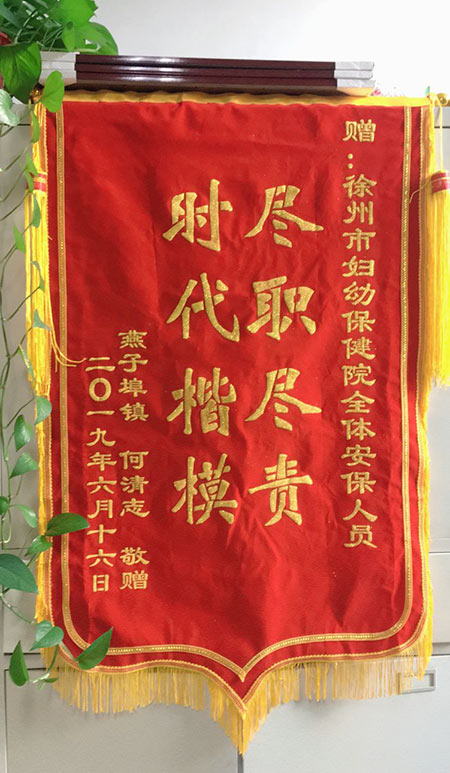 赠：徐州市妇幼保健院全体安保人员
尽职尽责
时代楷模
燕子埠镇 何清志 敬赠
二〇一九年六月十六日